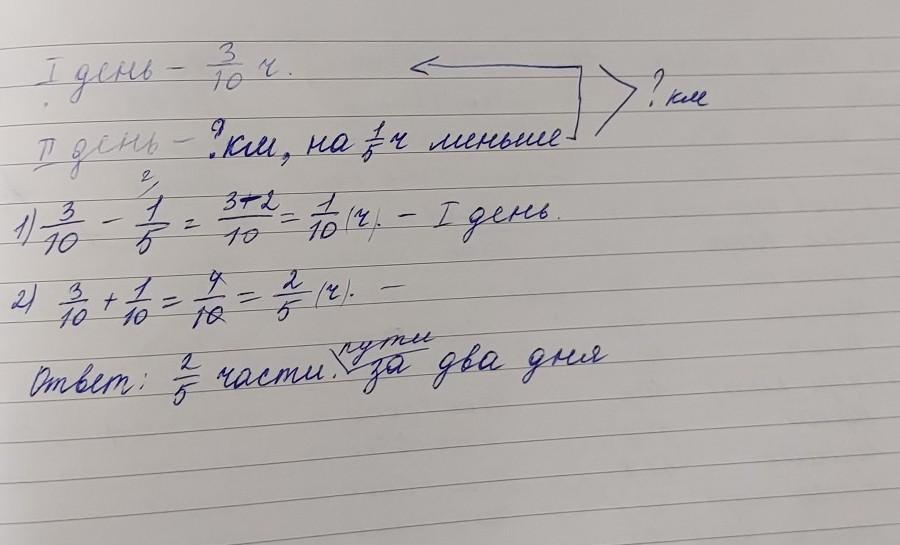 I день – 3/10 ч. ?км
II день – ?км, на 1/5 ч меньше
1) 3/10 – 1/5 2/ = 3-2/10 = 1/10 (ч). – I день.
2) 3/10 + 1/10 = 4/10 = 2/5 (ч). –
Ответ: 2/5 части. пути за два дня